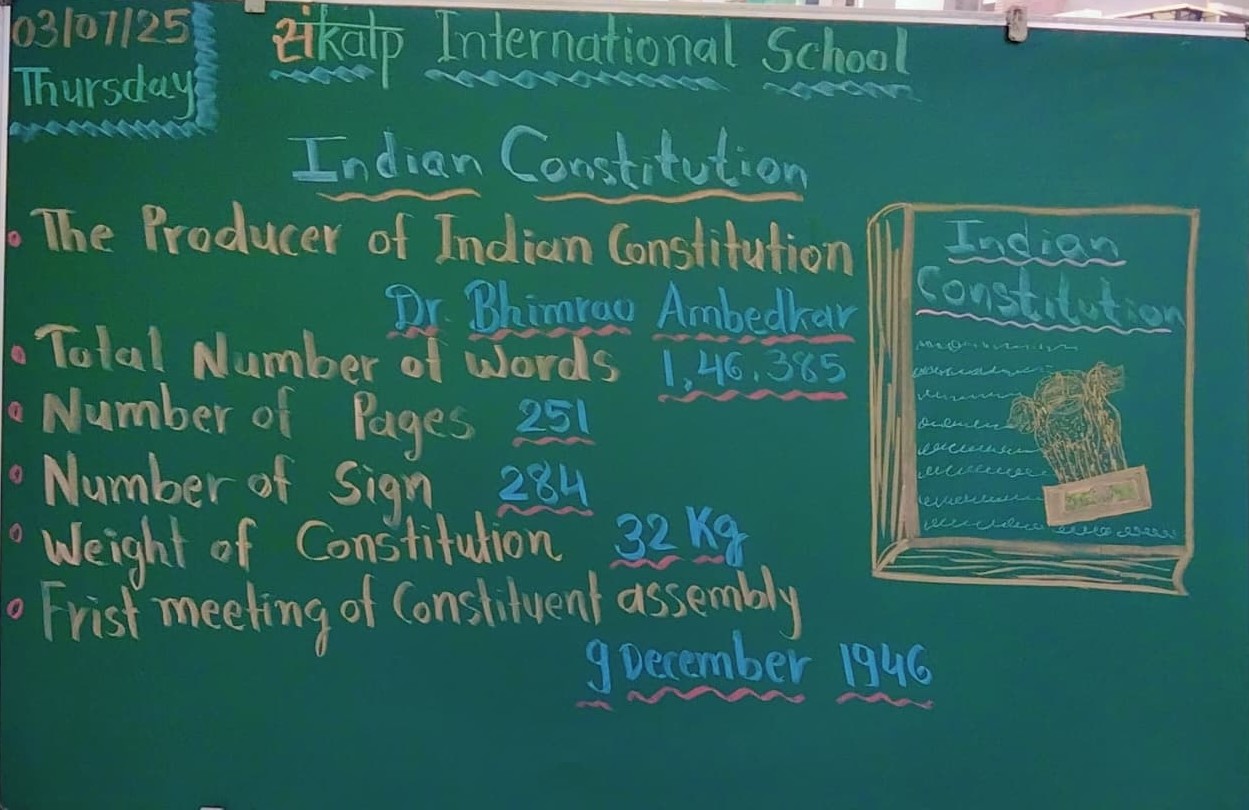 03/07/25
Thursday
संkalp International School
Indian Constitution
• The Producer of Indian Constitution
Dr. Bhimrao Ambedkar
• Total Number of words 1,46,385
• Number of Pages 251
• Number of Sign 284
• Weight of Constitution 32 Kg
• Frist meeting of Constituent assembly
9 December 1946
Indian
Constitution